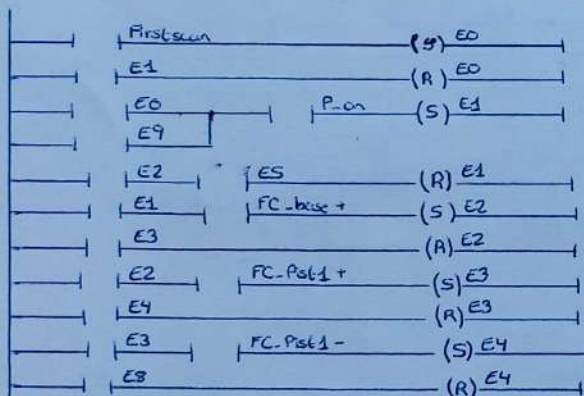 Firstscan (S) E0
E1 (R) E0
E0 P_on (S) E1
E9
E2 E5 (R) E1
E1 FC_base + (S) E2
E3 (R) E2
E2 FC_Pist1 + (S) E3
E4 (R) E3
E3 FC_Pist1 - (S) E4
E8 (R) E4